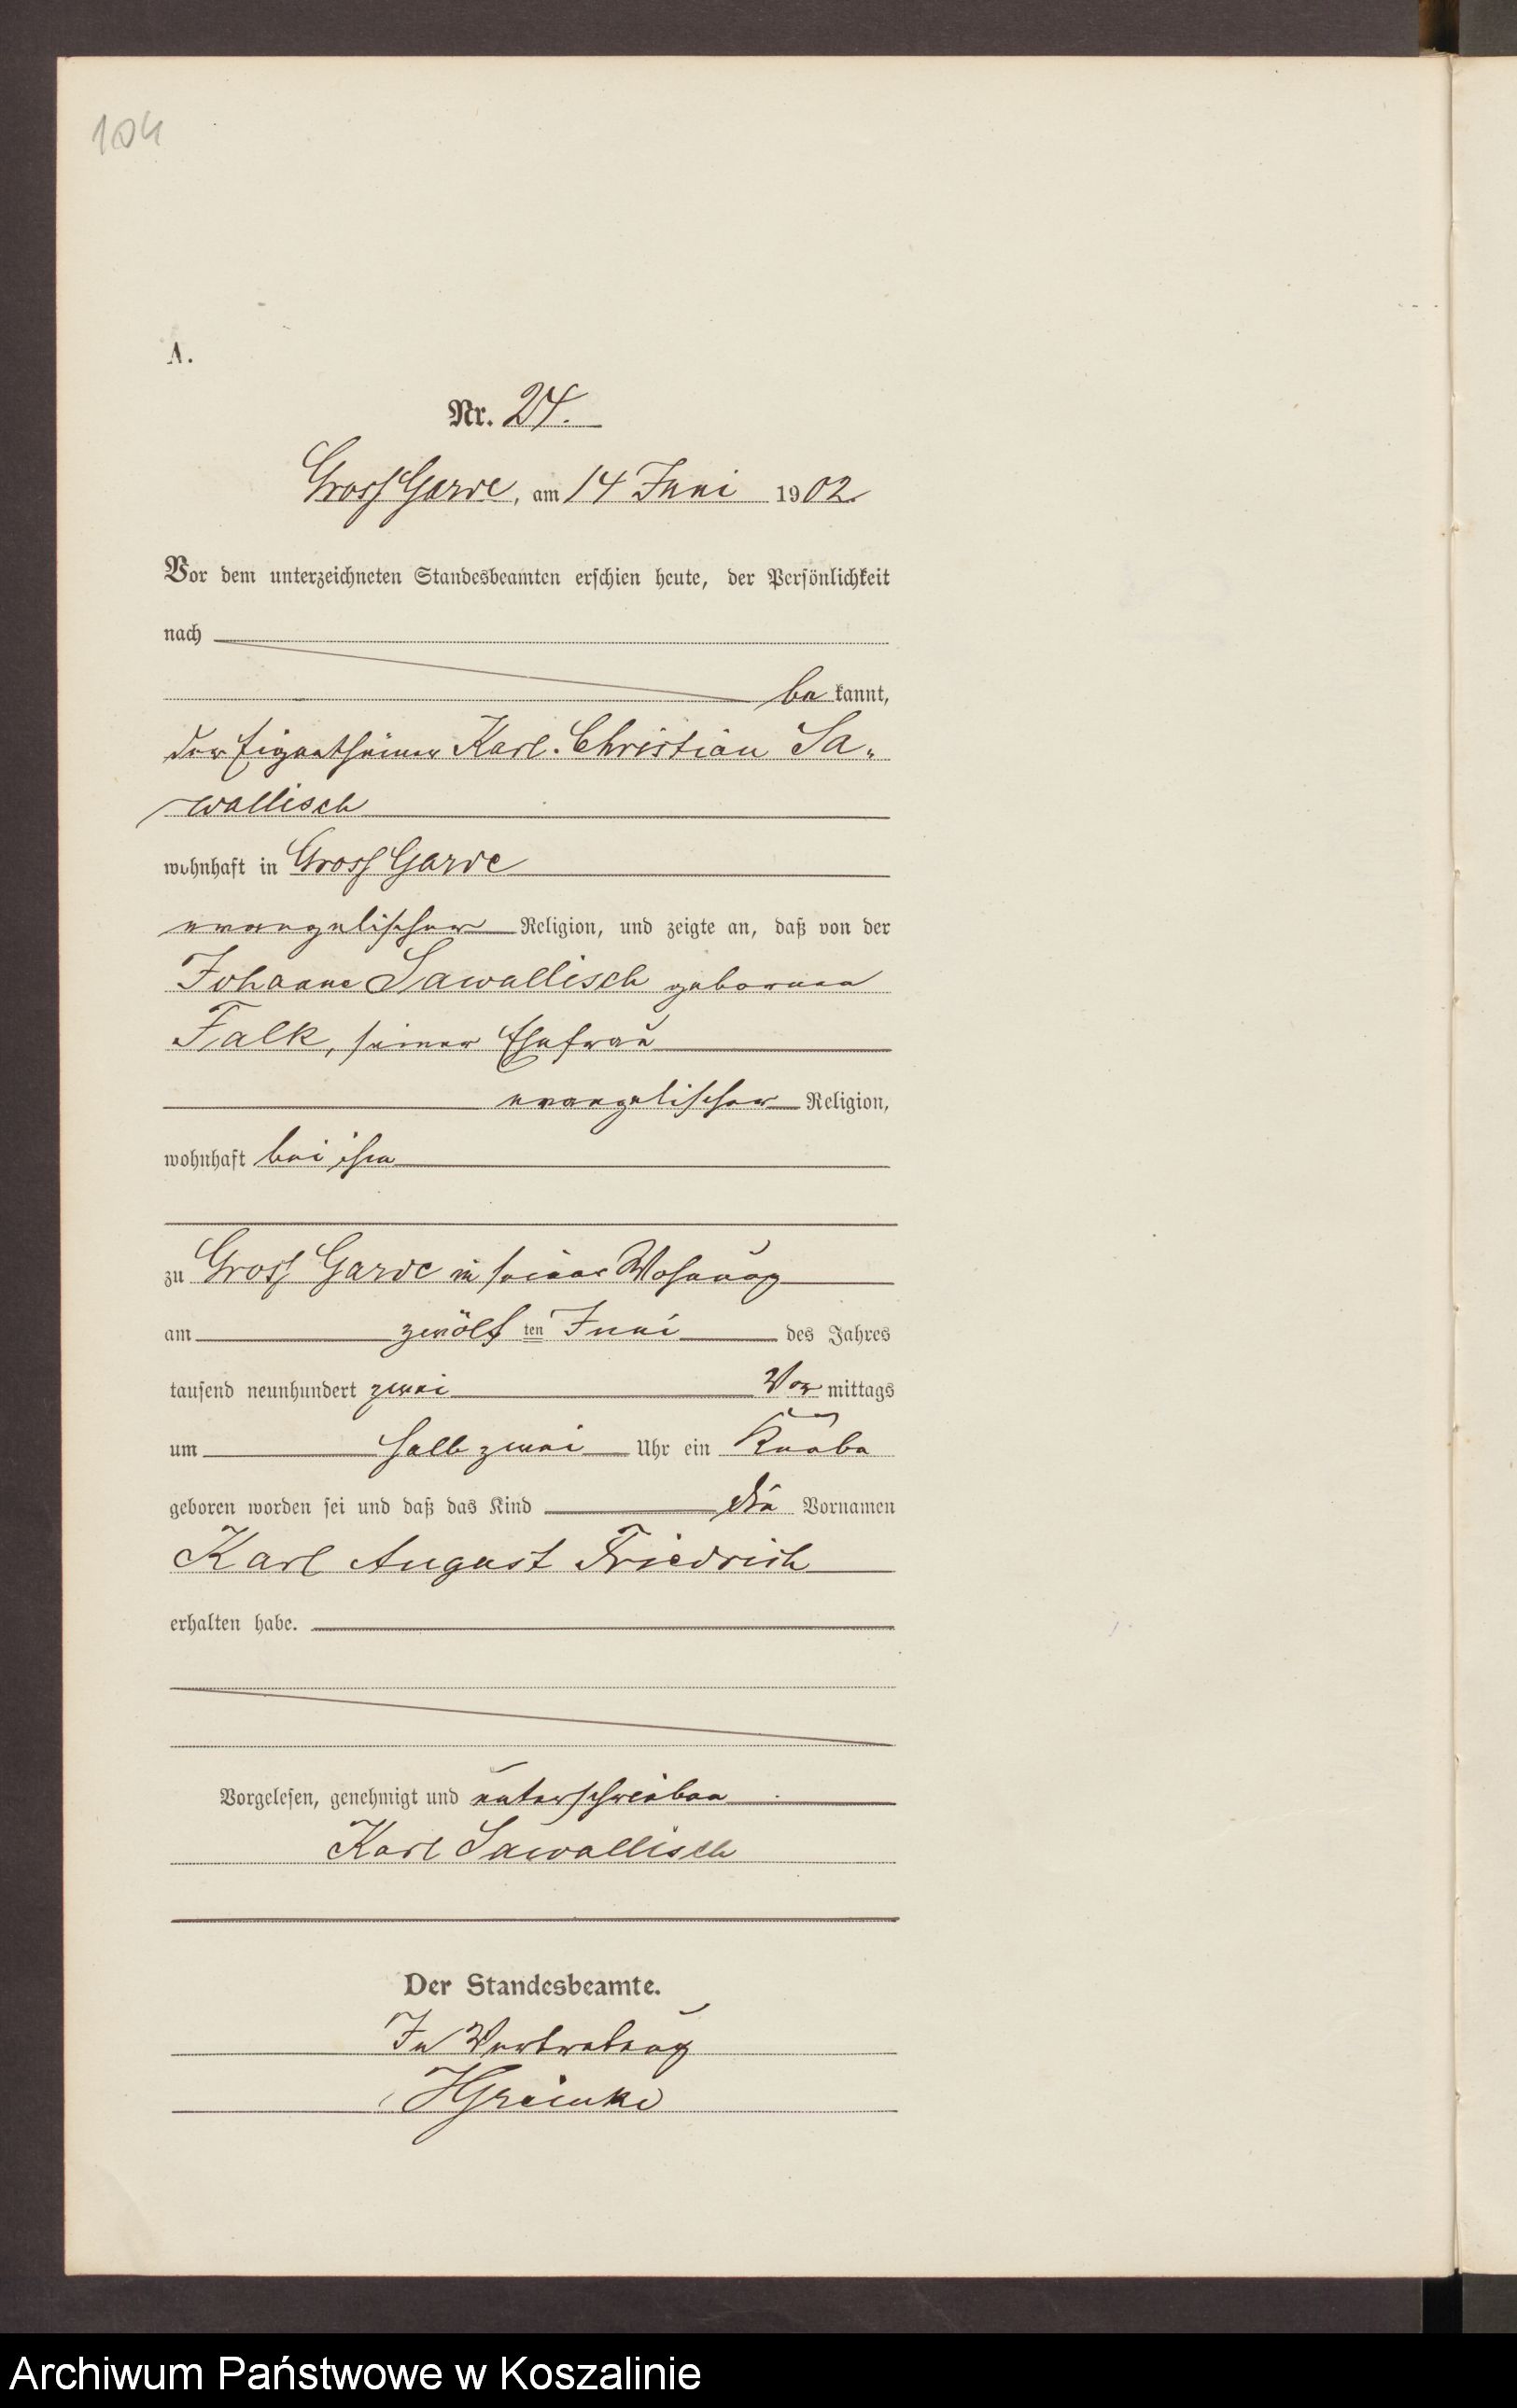 104
A.
Nr. 24.
Gross Garde, am 14 Juni 1902.
Vor dem unterzeichneten Standesbeamten erschien heute, der Persönlichkeit
nach
bekannt,
der Eigenthümer Karl Christian Sa-
wallisch
wohnhaft in Gross Garde
evangelischer Religion, und zeigte an, daß von der
Johanne Sawallisch geborenen
Falk, seiner Ehefrau
evangelischer Religion,
wohnhaft bei ihm
zu Gross Garde in seiner Wohnung
am zwölf ten Juni des Jahres
tausend neunhundert zwei Vormittags
um halb zwei Uhr ein Knabe
geboren worden sei und daß das Kind die Vornamen
Karl August Friedrich
erhalten habe.
Vorgelesen, genehmigt und unterschrieben
Karl Sawallisch
Der Standesbeamte.
In Vertretung
Archiwum Państwowe w Koszalinie